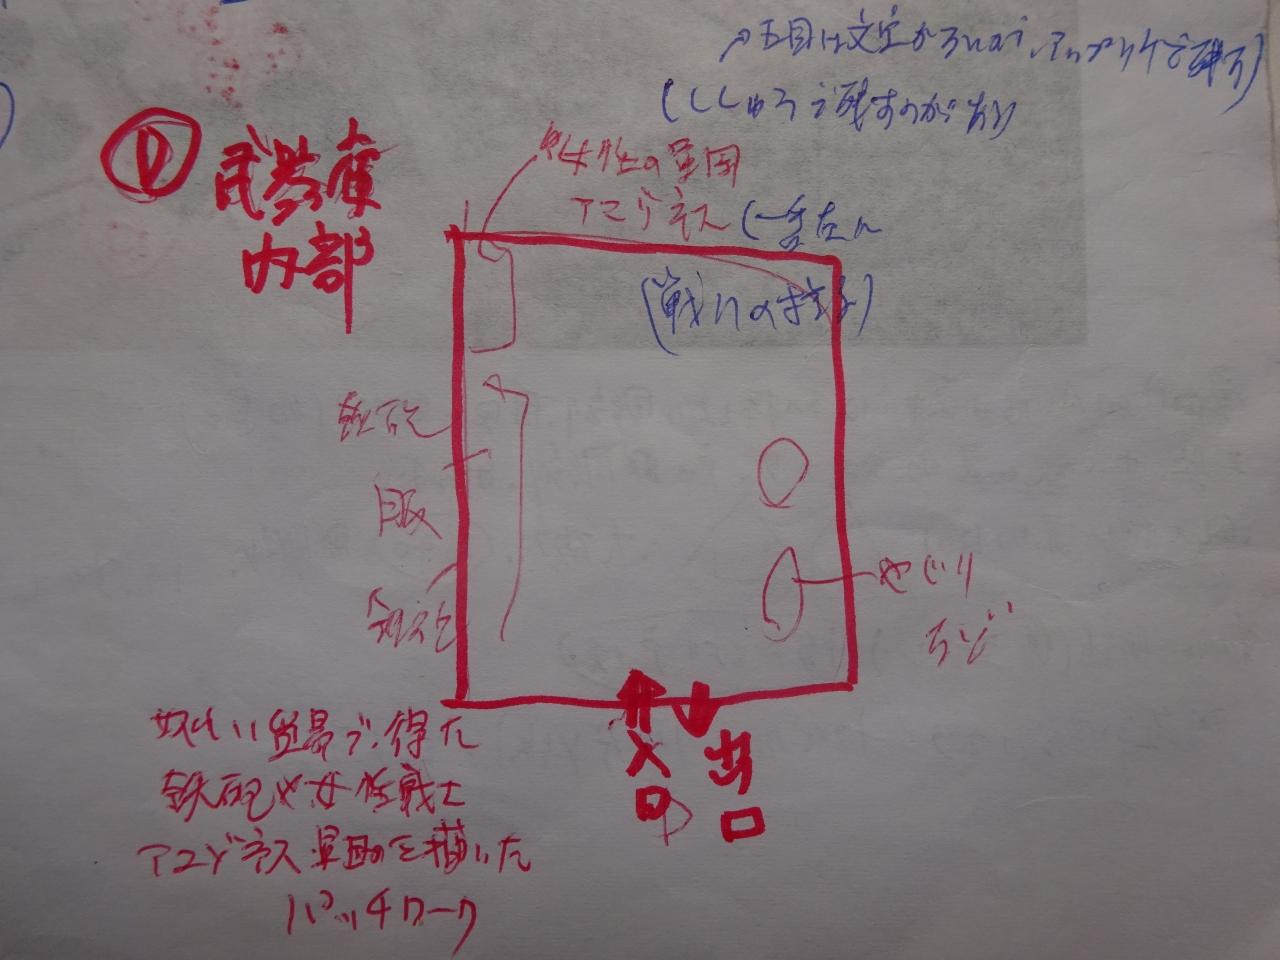 アップリケで残す)
(ししゅうで残すのがあり)
女性の軍団
アマゾネス (一番左に
(戦いの様子)
① 武器庫
内部
鉄砲
服
やじり
など
入口
出口
奴れい貿易で得た
鉄砲や女性戦士
アマゾネス軍団を描いた
パッチワーク